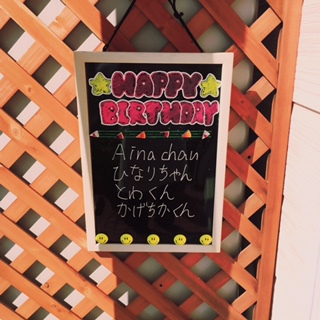 HAPPY
BIRTHDAY
Aina chan
ひなりちゃん
とわくん
かげちかくん